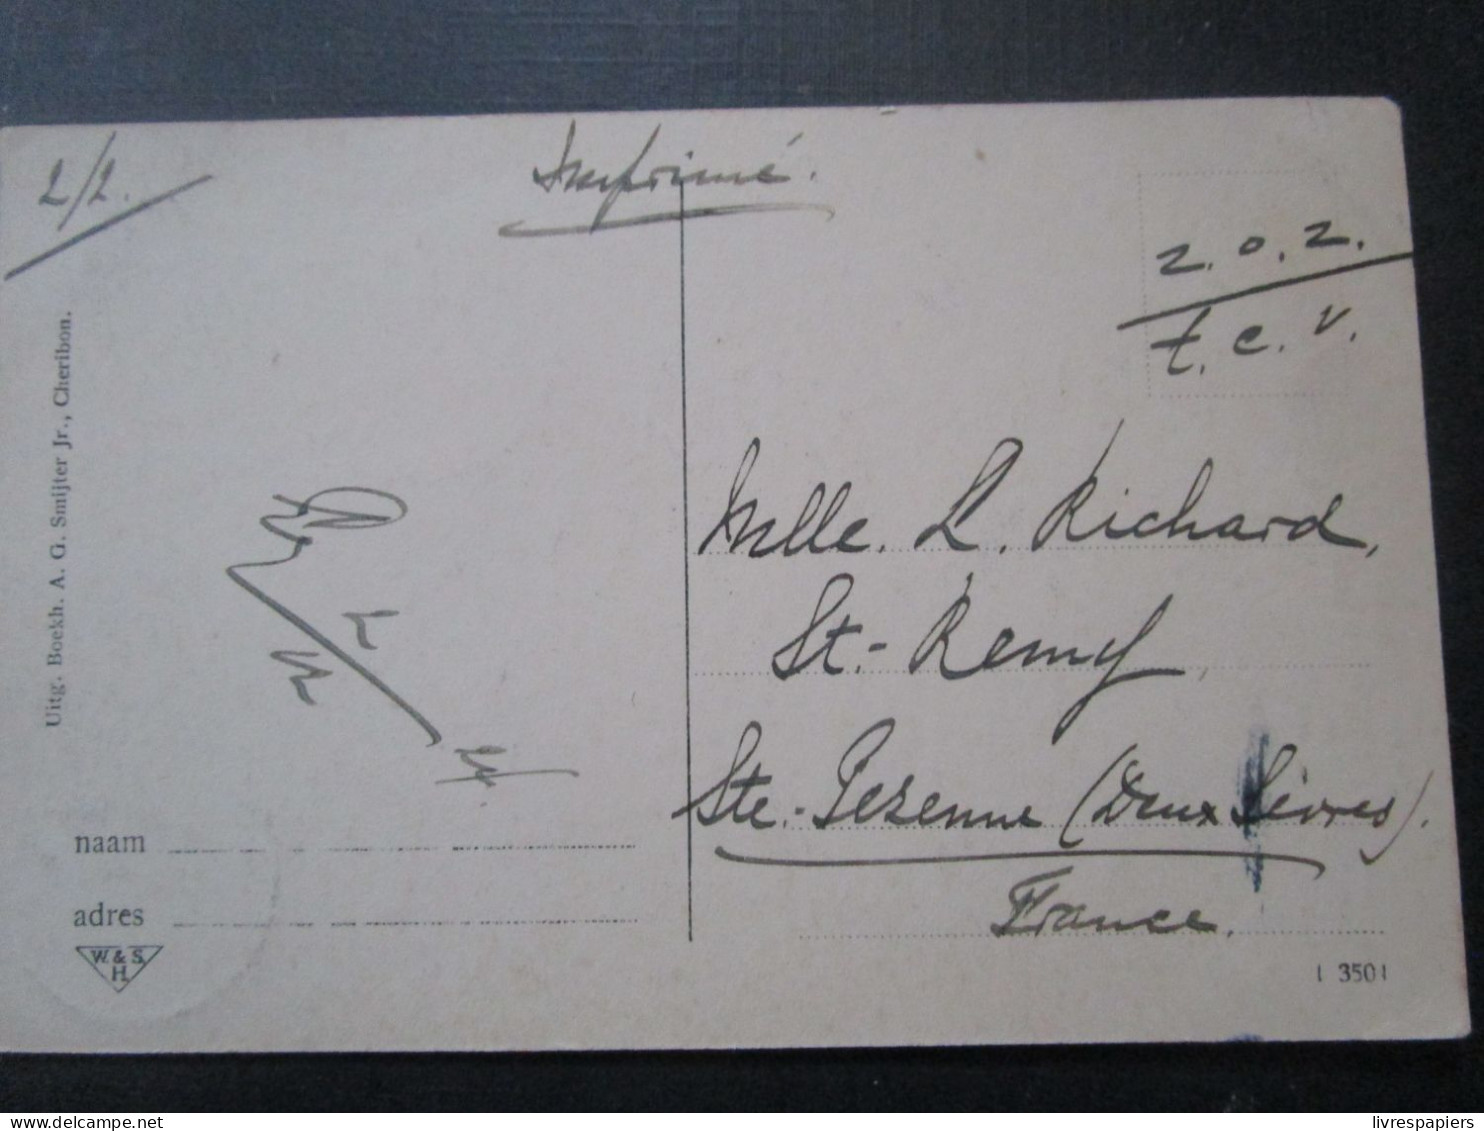 2/2.
Imprimé.
2.0.2.
t.c.v.
Uitg. Boekh. A. G. Smijter Jr., Cheribon.
Mlle. L. Richard,
St.-Remy
Ste.-Pezenne (Deux Sèvres).
France.
naam
adres
W. & S.
H.
1 3501
livrespapiers